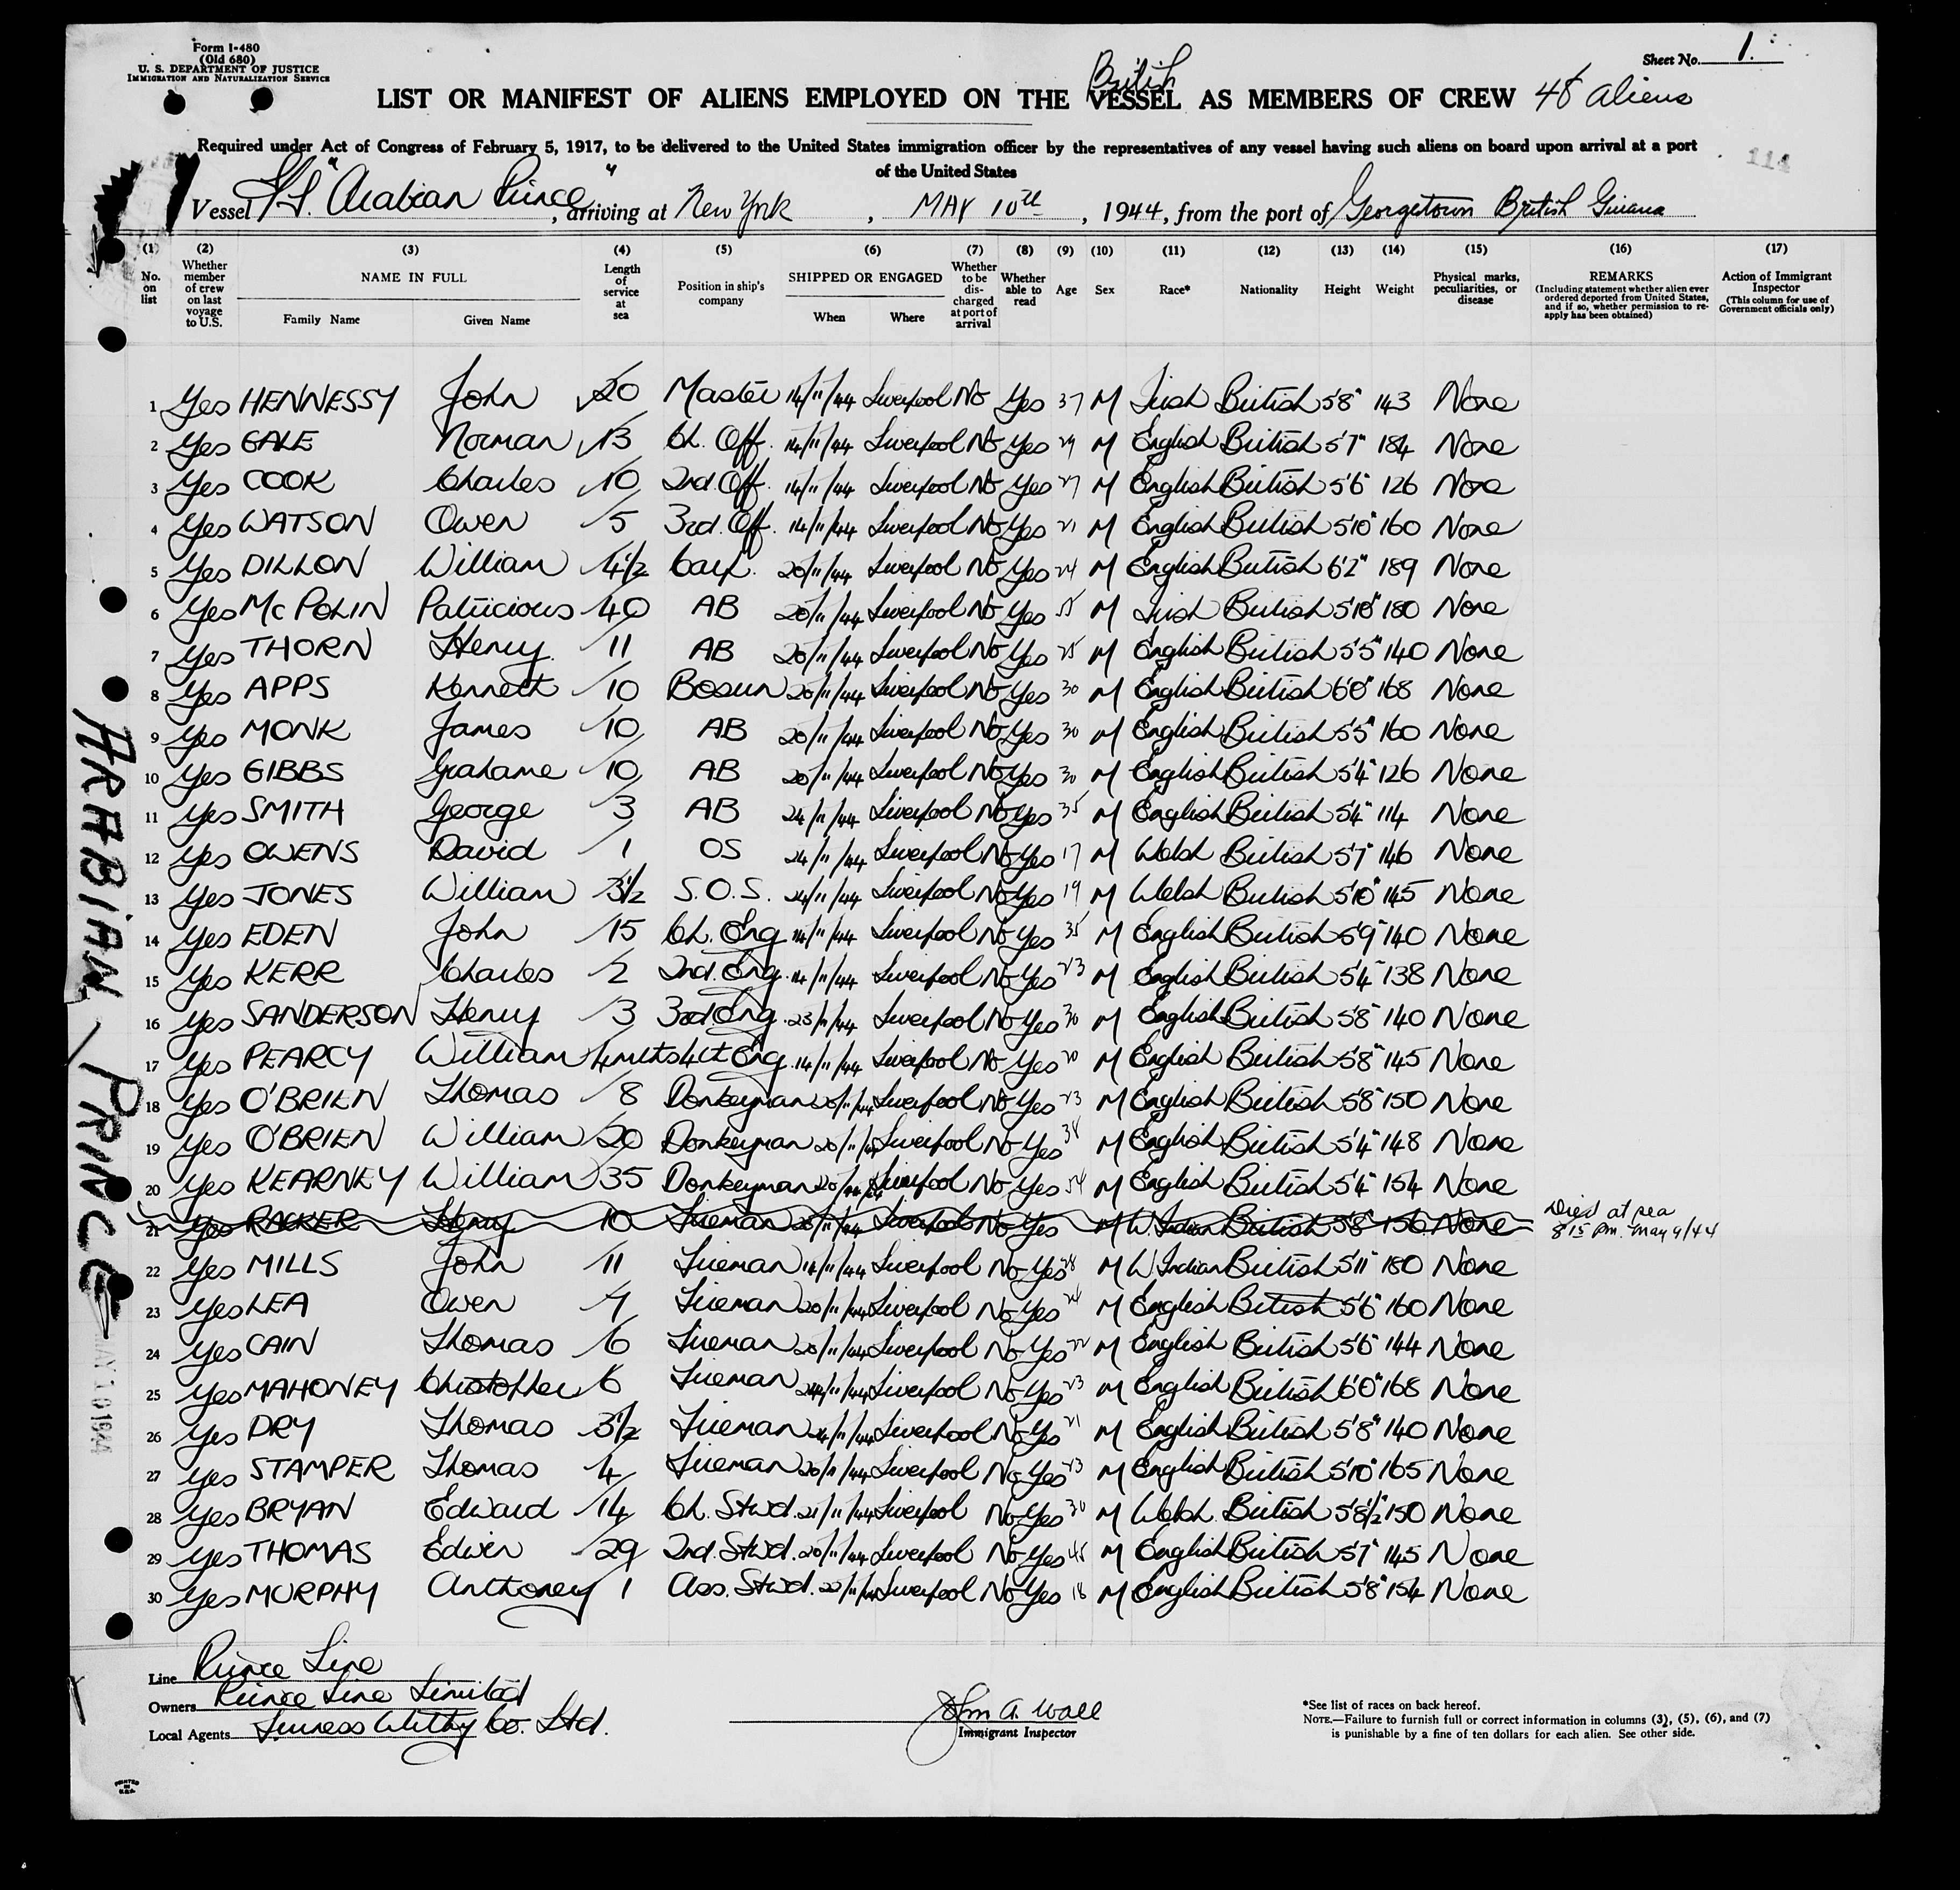 Form I-480
(Old 680)
U. S. DEPARTMENT OF JUSTICE
IMMIGRATION AND NATURALIZATION SERVICE
Sheet No. 1.
British
LIST OR MANIFEST OF ALIENS EMPLOYED ON THE VESSEL AS MEMBERS OF CREW 48 aliens
Required under Act of Congress of February 5, 1917, to be delivered to the United States immigration officer by the representatives of any vessel having such aliens on board upon arrival at a port
of the United States
114
Vessel "Arabian Prince", arriving at New York, MAY 10th, 1944, from the port of Georgetown British Guiana
(1) (2) (3) (4) (5) (6) (7) (8) (9) (10) (11) (12) (13) (14) (15) (16) (17)
No. on list
Whether member of crew on last voyage to U.S.
NAME IN FULL
Family Name Given Name
Length of service at sea
Position in ship's company
SHIPPED OR ENGAGED
When Where
Whether to be discharged at port of arrival
Whether able to read
Age
Sex
Race*
Nationality
Height
Weight
Physical marks, peculiarities, or disease
REMARKS
(Including statement whether alien ever ordered deported from United States, and if so, whether permission to re-apply has been obtained)
Action of Immigrant Inspector
(This column for use of Government officials only)
1 Yes HENNESSY John 20 Master 14/11/44 Liverpool No Yes 37 M Irish British 5'8" 143 None
2 Yes GALE Norman 13 Ch. Off. 14/11/44 Liverpool No Yes 29 M English British 5'7" 184 None
3 Yes COOK Charles 10 2nd. Off. 14/11/44 Liverpool No Yes 27 M English British 5'6" 126 None
4 Yes WATSON Owen 5 3rd. Off. 14/11/44 Liverpool No Yes 21 M English British 5'10" 160 None
5 Yes DILLON William 4½ Carp. 20/11/44 Liverpool No Yes 24 M English British 6'2" 189 None
6 Yes McPOLIN Patricious 40 AB 20/11/44 Liverpool No Yes 55 M Irish British 5'10" 180 None
7 Yes THORN Henry 11 AB 20/11/44 Liverpool No Yes 25 M English British 5'5" 140 None
8 Yes APPS Kenneth 10 Bosun 20/11/44 Liverpool No Yes 30 M English British 6'0" 168 None
9 Yes MONK James 10 AB 20/11/44 Liverpool No Yes 30 M English British 5'5" 160 None
10 Yes GIBBS Grahame 10 AB 20/11/44 Liverpool No Yes 30 M English British 5'4" 126 None
11 Yes SMITH George 3 AB 24/11/44 Liverpool No Yes 35 M English British 5'4" 114 None
12 Yes OWENS David 1 OS 24/11/44 Liverpool No Yes 17 M Welsh British 5'7" 146 None
13 Yes JONES William 3½ S.O.S. 24/11/44 Liverpool No Yes 19 M Welsh British 5'10" 145 None
14 Yes EDEN John 15 Ch. Eng 14/11/44 Liverpool No Yes 35 M English British 5'9" 140 None
15 Yes KERR Charles 2 2nd. Eng. 14/11/44 Liverpool No Yes 23 M English British 5'4" 138 None
16 Yes SANDERSON Henry 3 3rd Eng. 23/11/44 Liverpool No Yes 30 M English British 5'8" 140 None
17 Yes PEARCY William 4mths 4th Eng. 14/11/44 Liverpool No Yes 20 M English British 5'8" 145 None
18 Yes O'BRIEN Thomas 8 Donkeyman 20/11/44 Liverpool No Yes 23 M English British 5'8" 150 None
19 Yes O'BRIEN William 20 Donkeyman 20/11/44 Liverpool No Yes 38 M English British 5'4" 148 None
20 Yes KEARNEY William 35 Donkeyman 20/11/44 Liverpool No Yes 54 M English British 5'4" 154 None
21 Yes Henry 10 Fireman Liverpool No Yes M W. Indian British 5'8" 156 None Died at sea
8 15 pm. May 9/44
22 Yes MILLS John 11 Fireman 14/11/44 Liverpool No Yes 28 M W Indian British 5'11" 180 None
23 Yes LEA Owen Fireman 20/11/44 Liverpool No Yes 24 M English British 5'6" 160 None
24 Yes CAIN Thomas 6 Fireman 20/11/44 Liverpool No Yes 22 M English British 5'6" 144 None
25 Yes MAHONEY Christopher 6 Fireman 24/11/44 Liverpool No Yes 23 M English British 6'0" 168 None
26 Yes DRY Thomas 3½ Fireman 24/11/44 Liverpool No Yes 21 M English British 5'8" 140 None
27 Yes STAMPER Thomas 4 Fireman 20/11/44 Liverpool No Yes 23 M English British 5'10" 165 None
28 Yes BRYAN Edward 14 Ch. Stwd. 21/11/44 Liverpool No Yes 30 M Welsh British 5'8½" 150 None
29 Yes THOMAS Edwin 29 2nd. Stwd. 20/11/44 Liverpool No Yes 45 M English British 5'7" 145 None
30 Yes MURPHY Anthoney 1 Ass. Stwd. 20/11/44 Liverpool No Yes 18 M English British 5'8" 154 None
ARABIAN PRINCE
MAY 10 1944
Line Prince Line
Owners Prince Line Limited
Local Agents Furness Withy Co. Ltd.
John A. Wall
Immigrant Inspector
*See list of races on back hereof.
NOTE.—Failure to furnish full or correct information in columns (3), (5), (6), and (7)
is punishable by a fine of ten dollars for each alien. See other side.
PRINTED IN U.S.A.